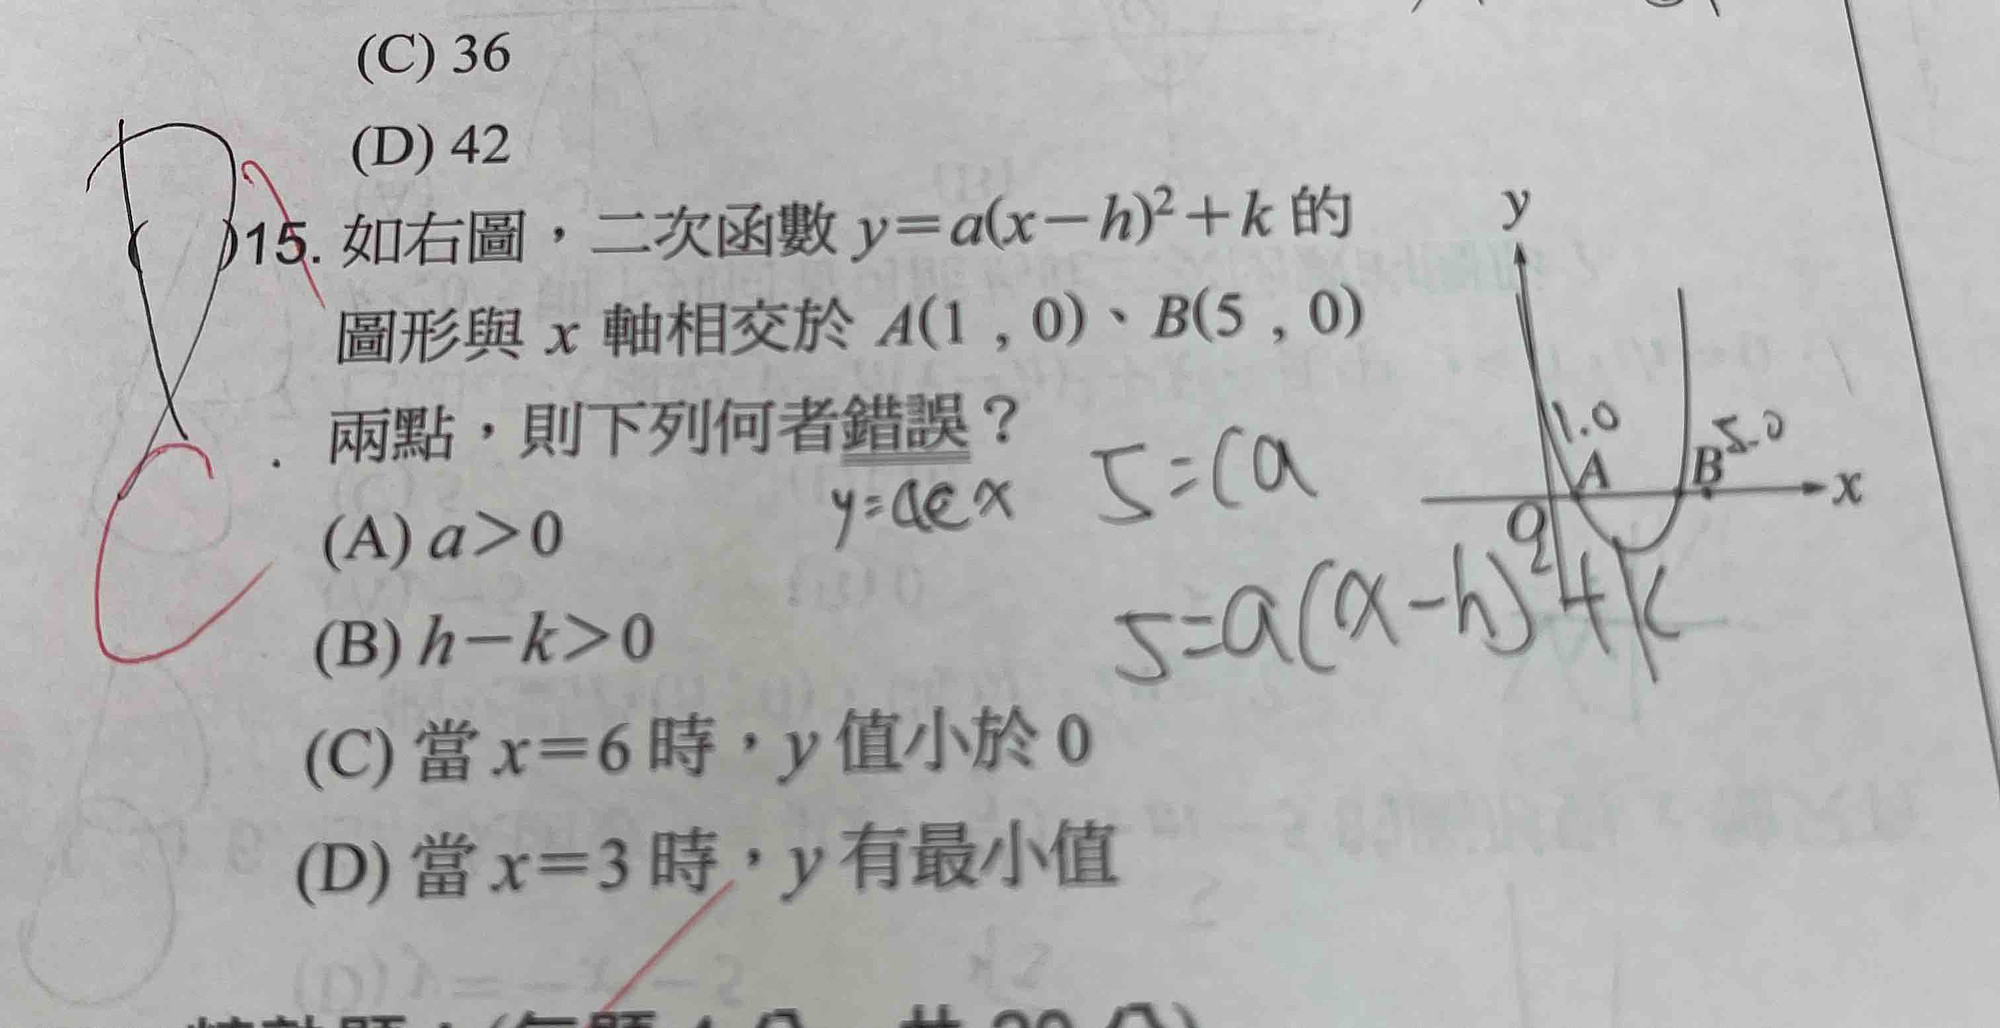 (C) 36
(D) 42
( )15. 如右圖，二次函數 y=a(x-h)²+k 的
圖形與 x 軸相交於 A(1 , 0)、B(5 , 0)
兩點，則下列何者錯誤？
(A) a>0
(B) h-k>0
(C) 當 x=6 時，y 值小於 0
(D) 當 x=3 時，y 有最小值
y
1.0
A
B
5.0
x
O
5=(a
5=a(x-h)²+k